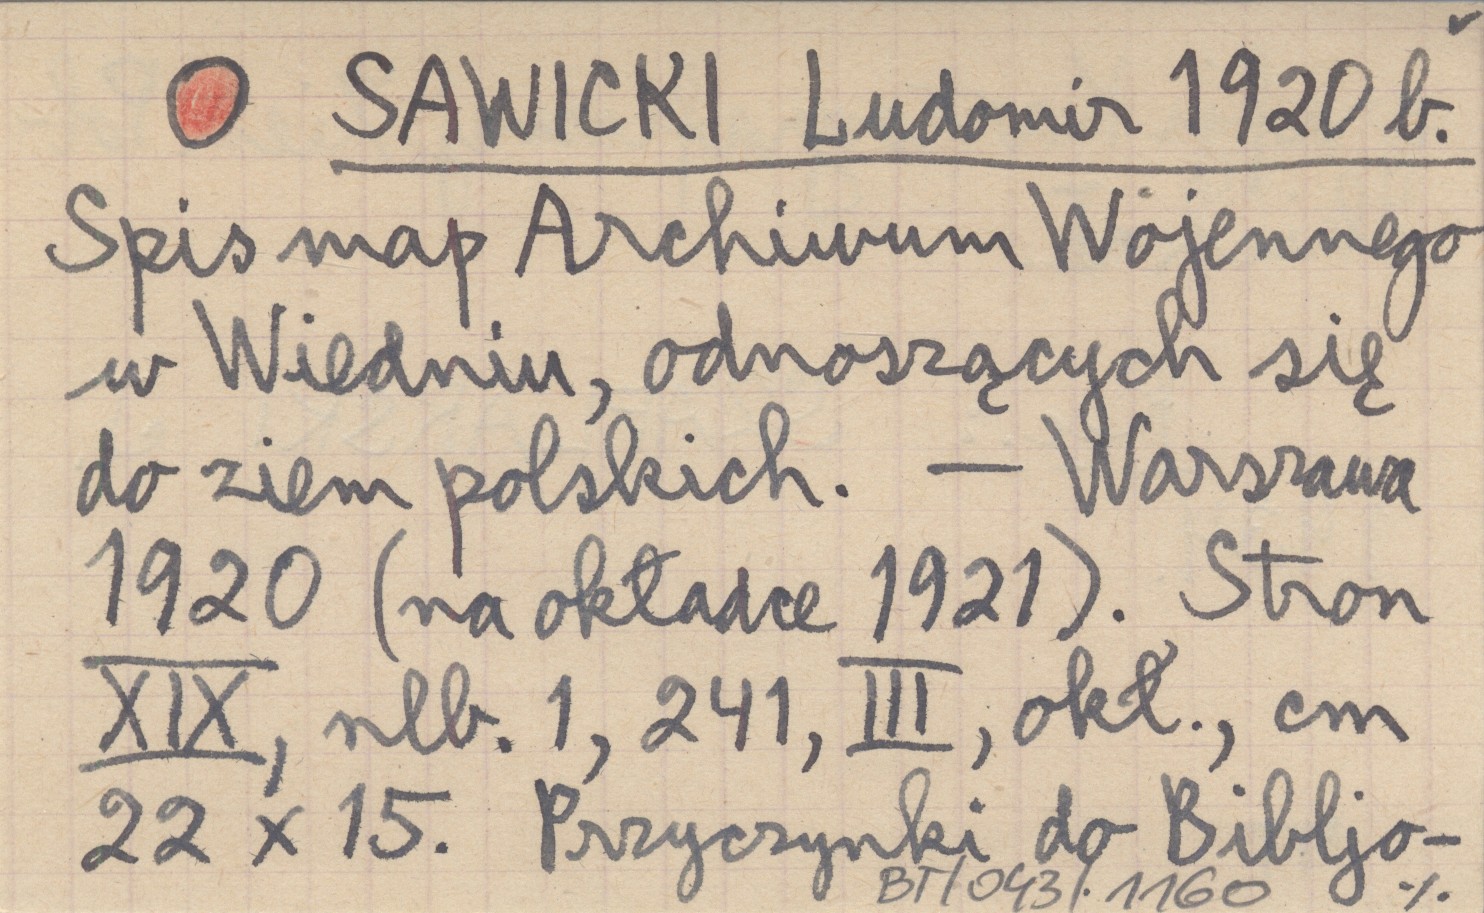 SAWICKI Ludomir 1920 b.
Spis map Archiwum Wojennego
w Wiedniu, odnoszących się
do ziem polskich. — Warszawa
1920 (na okładce 1921). Stron
XIX, nlb. 1, 241, III, okł., cm
22 x 15. Przyczynki do Bibljo-
BT/043/. 1160 ./.